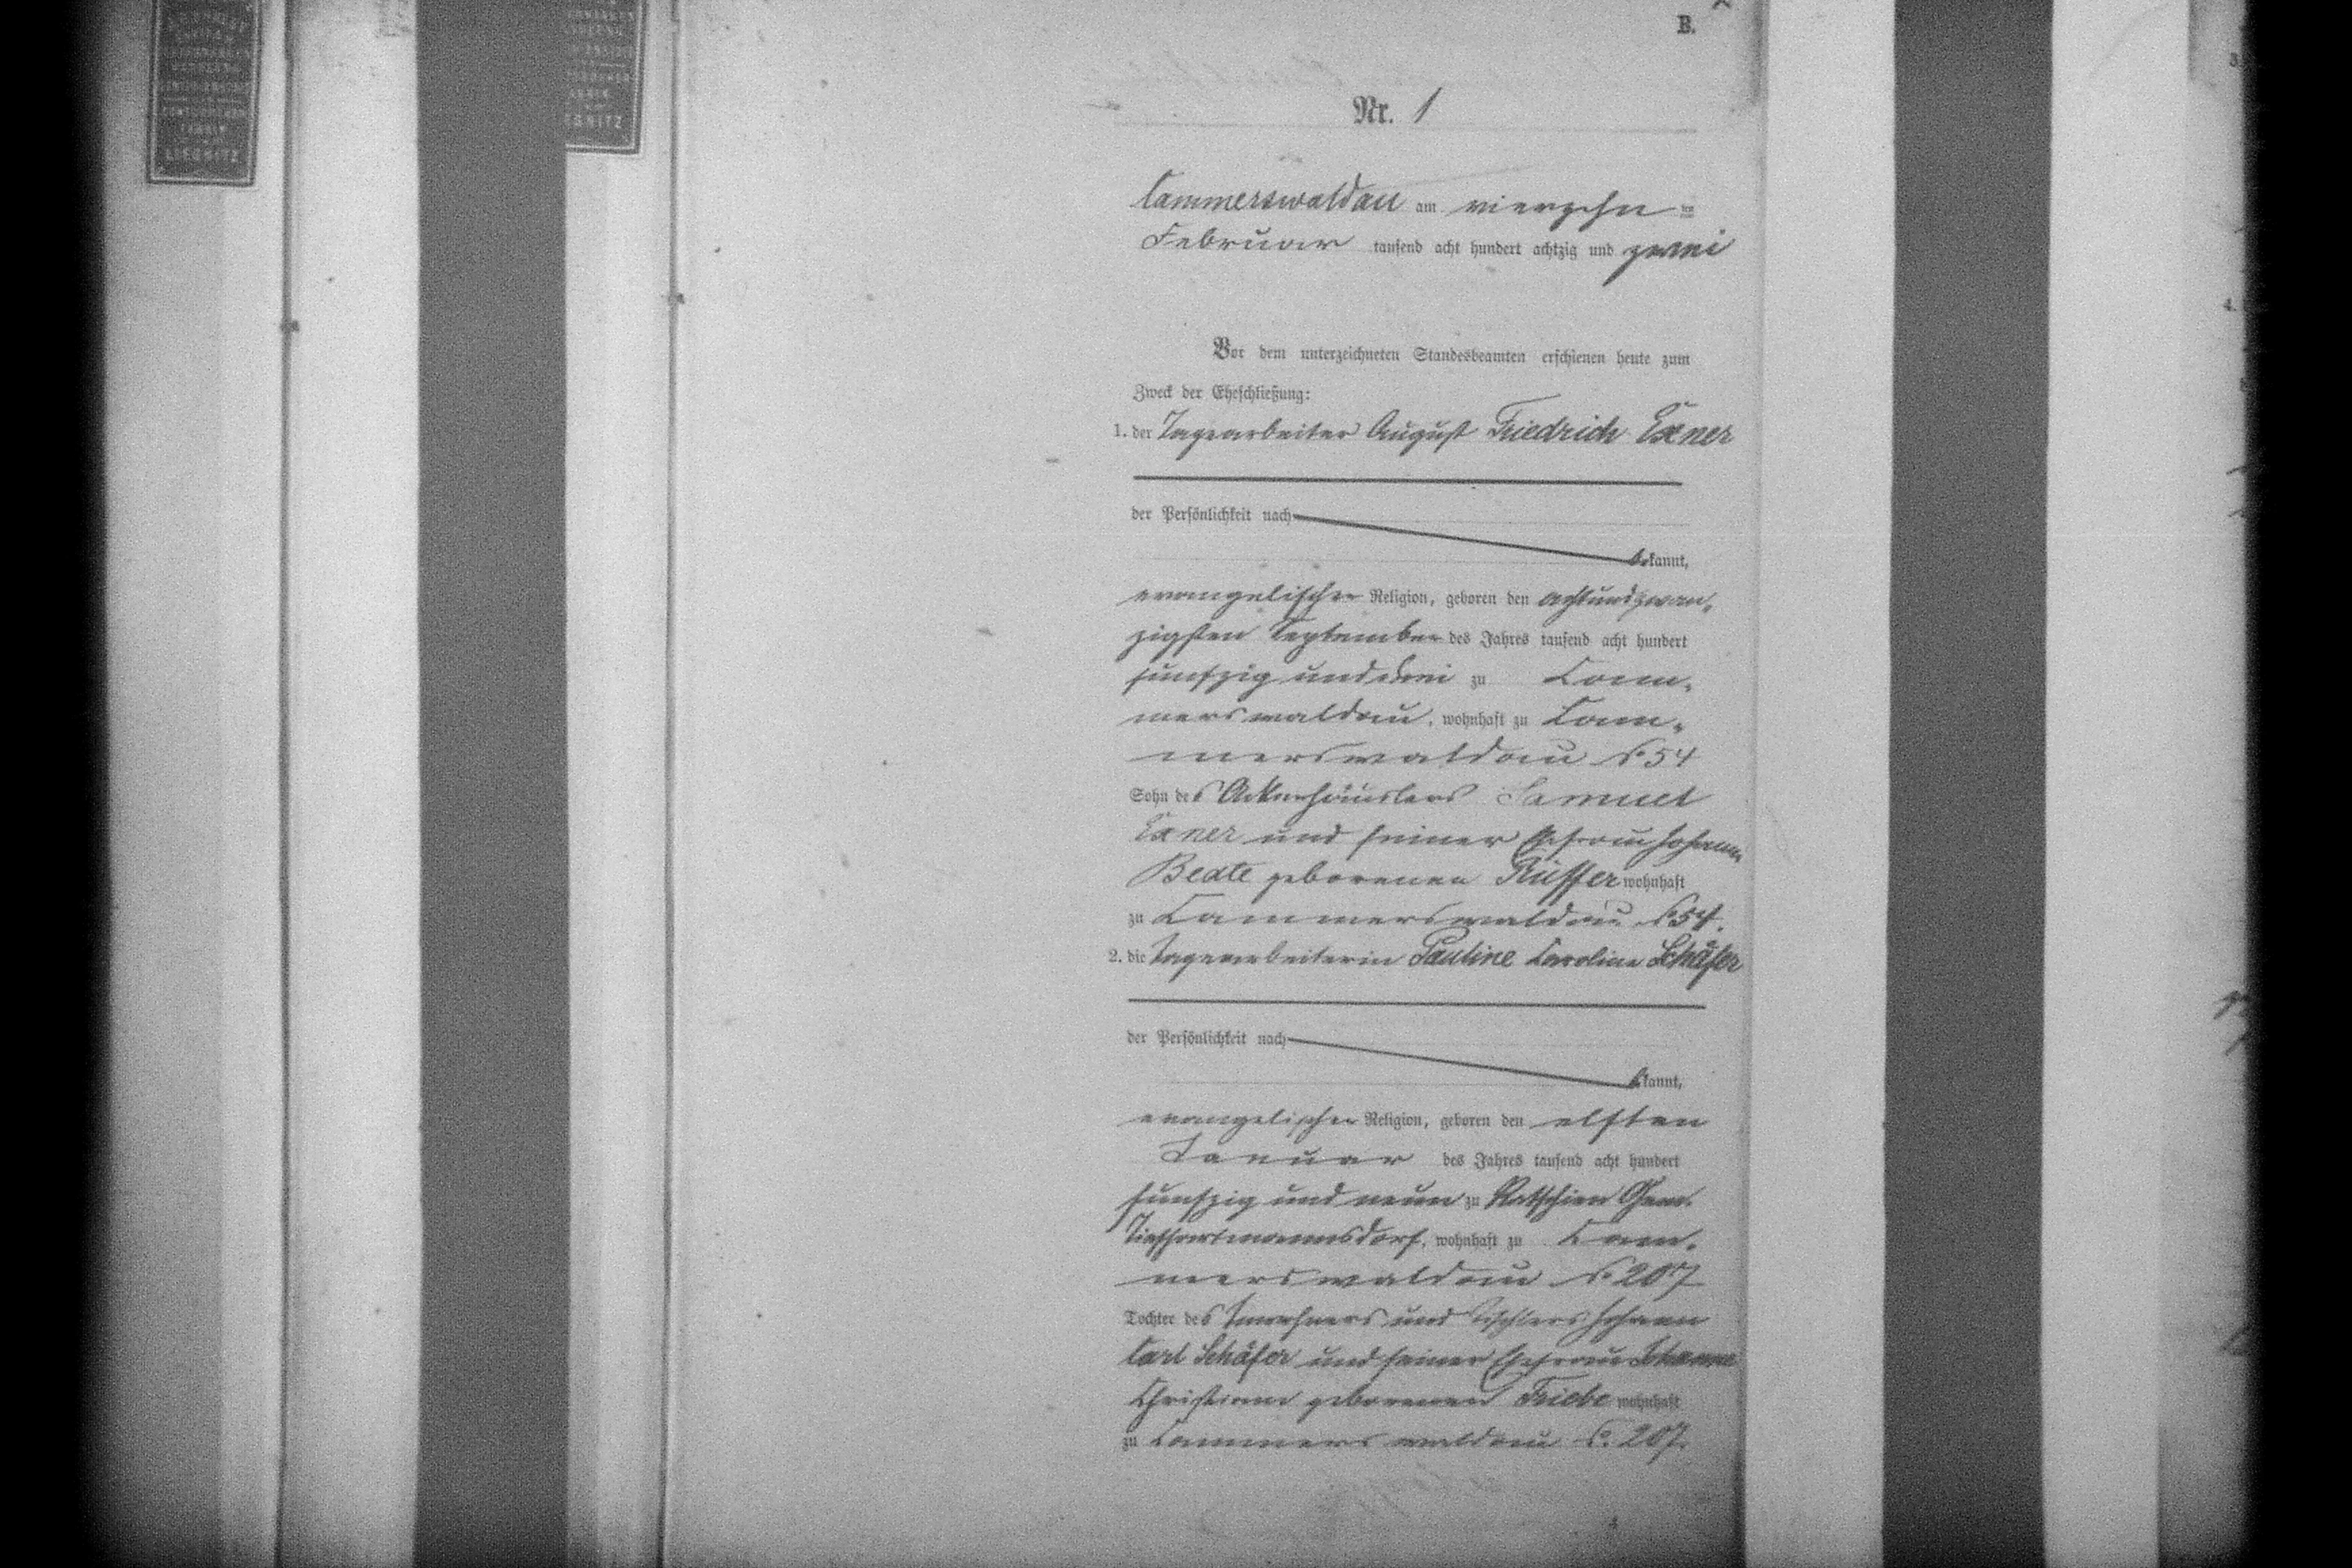 B.
Nr. 1
Cammerswaldau am vierzehn ten
Februar tausend acht hundert achtzig und zwei
Vor dem unterzeichneten Standesbeamten erschienen heute zum
Zweck der Eheschließung:
1. der Tagearbeiter August Friedrich Exner
der Persönlichkeit nach
bekannt,
evangelischer Religion, geboren den achtundzwan-
zigsten September des Jahres tausend acht hundert
fünfzig und drei zu Cam-
merswaldau, wohnhaft zu Cam-
merswaldau No 54
Sohn des Ackerhäuslers Samuel
Exner und seiner Ehefrau Johanne
Beate geborenen Rüffer wohnhaft
zu Cammerswaldau No 54.
2. die Tagearbeiterin Pauline Caroline Schäfer
der Persönlichkeit nach
bekannt,
evangelischer Religion, geboren den elften
Januar des Jahres tausend acht hundert
fünfzig und neun zu Ratschien Gem.
Tiefhartmannsdorf, wohnhaft zu Cam-
merswaldau No 207
Tochter des Inwohners und Tischlers Johann
Carl Schäfer und seiner Ehefrau Johanne
Christiane geborenen Friebe wohnhaft
zu Cammerswaldau No. 207.
LIEGNITZ
3
4.